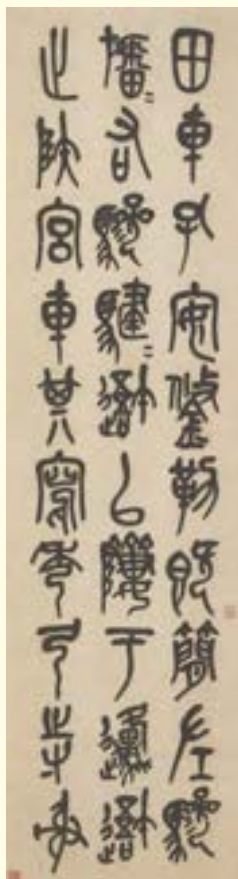 田車孔安鋚勒既簡左驂
旛〻右驂騝〻避以隮于邍避
止陝宮車其寫秀弓寺射